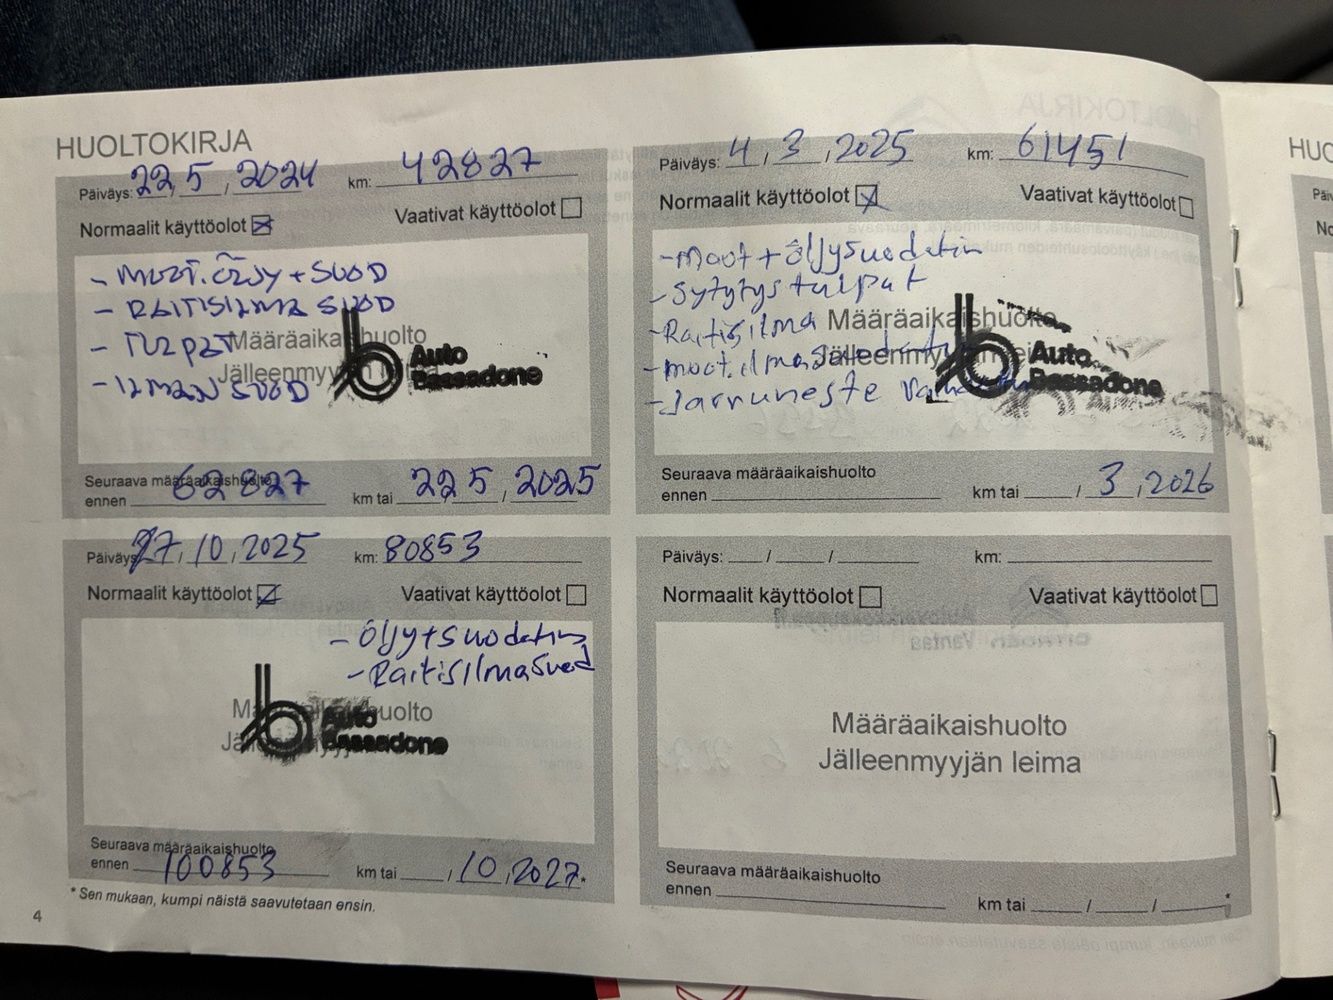 HUOLTOKIRJA
Päiväys: 22, 5, 2024 km: 42827
Normaalit käyttöolot Vaativat käyttöolot
- MOOT. ÖLJY + SUOD
- RAITISILMA SUOD
- TULPAT
- ILMAN SUOD
Määräaikaishuolto
Jälleenmyyjän leima
Auto
Bassadone
Seuraava määräaikaishuolto
ennen 62827 km tai 22 5, 2025
Päiväys: 4, 3, 2025 km: 61451
Normaalit käyttöolot Vaativat käyttöolot
- moot + öljysuodatin
- Sytytystulpat
- Raitisilma
- moot. ilma
- Jarruneste
Määräaikaishuolto
Jälleenmyyjän leima
Auto
Bassadone
Seuraava määräaikaishuolto
ennen km tai / 3, 2026
Päiväys: 27, 10, 2025 km: 80853
Normaalit käyttöolot Vaativat käyttöolot
- Öljy + suodatin
- Raitisilmasuod
Määräaikaishuolto
Auto
Bassadone
Seuraava määräaikaishuolto
ennen 100853 km tai , 10, 2027*
Päiväys: / / km:
Normaalit käyttöolot Vaativat käyttöolot
Määräaikaishuolto
Jälleenmyyjän leima
Seuraava määräaikaishuolto
ennen km tai / / *
* Sen mukaan, kumpi näistä saavutetaan ensin.
4
HUO